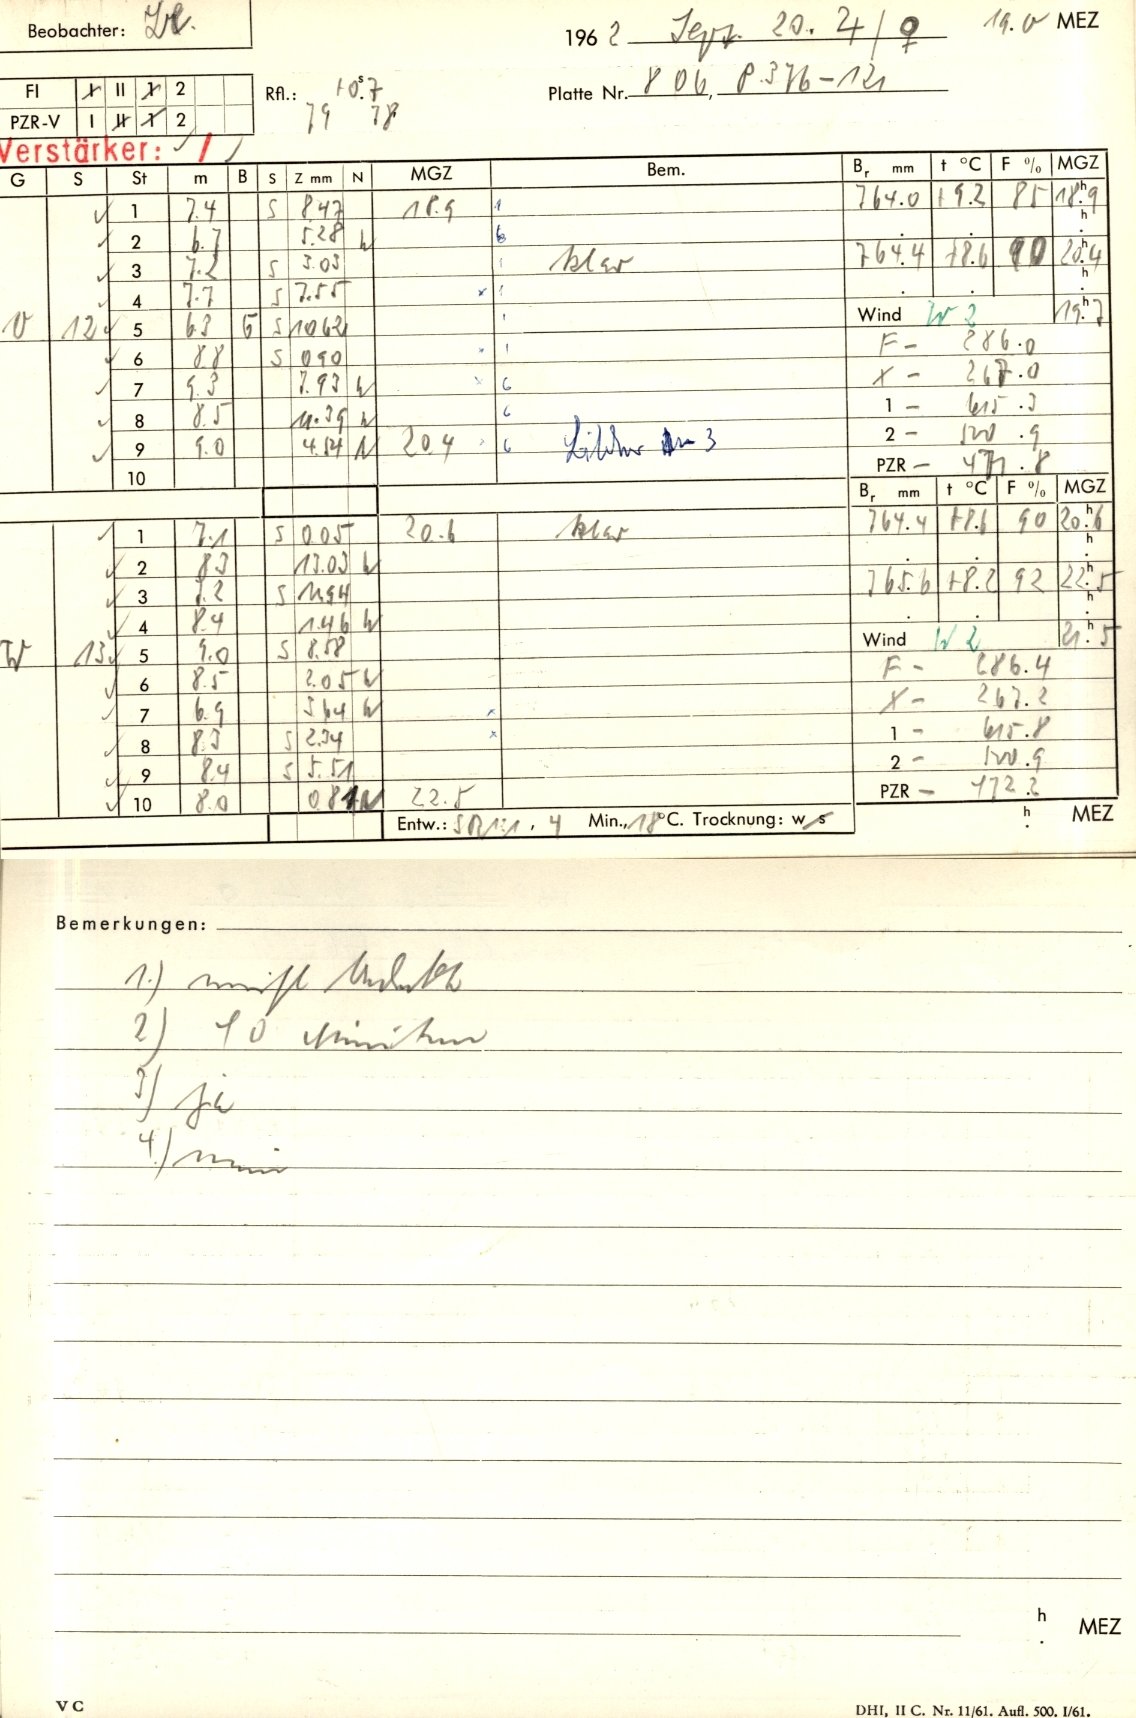 Beobachter:
196 2 Sept. 20. ♃/♀ 19.0 MEZ
FI I II 1 2
PZR-V I II 1 2
Rfl.: +0.s7
79 78
Platte Nr. 806, P.376-12
Verstärker: /
G S St m B S Z mm N MGZ Bem. Br mm t °C F % MGZ
1 7.4 S 8.47 18.9 1 764.0 +9.2 85 18.h9
2 6.7 5.28 W 6
3 7.2 S 3.03 1 klar 764.4 +8.6 90 20.h4
4 7.7 S 7.55 × 1
V 12 5 6.3 6 S 10.62 1 Wind W 2 19.h7
6 8.8 S 0.90 × 1 F - 286.0
7 9.3 7.93 W × 6 X - 267.0
8 8.5 11.39 W 6 1 - 615.3
9 9.0 4.54 W 20.4 6 3 2 - 120.9
10 PZR - 471.8
Br mm t °C F % MGZ
1 7.1 S 0.05 20.6 klar 764.4 +8.6 90 20.h6
2 8.3 13.03 W
3 S 11.94 765.6 +8.2 92 22.h5
4 8.4 1.46 W
W 13 5 9.0 S 8.58 Wind W 2 21.h5
6 8.5 2.05 W F - 286.4
7 6.9 3.64 W × X - 267.2
8 8.3 S 2.34 × 1 - 615.8
9 8.4 S 5.51 2 - 120.9
10 8.0 0.81 W 22.5 PZR - 472.2
Entw.: 4 Min., 18°C. Trocknung: w/s h MEZ
Bemerkungen:
1.)
2.) 10 Minuten
3.) ja
4.) nein
h MEZ
V C
DHI, II C. Nr. 11/61. Aufl. 500. I/61.